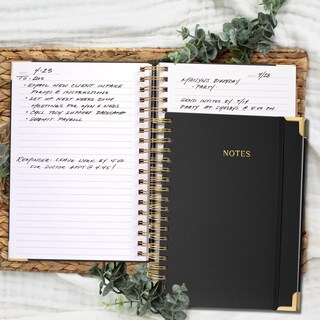 4-23
TO-DOS
• EMAIL NEW CLIENT INTAKE
FORMS & INSTRUCTIONS
• SET UP NEXT WEEKS ZOOM
MEETINGS FOR MON & WEDS
• CALL TONY SUMMERS
• SUBMIT PAYROLL
REMINDER: LEAVE WORK BY 4:00
FOR DOCTOR APPT @ 4:45!
7/23
MADILYN'S BIRTHDAY
- PARTY
SEND INVITES BY 7/4
PARTY AT @
NOTES